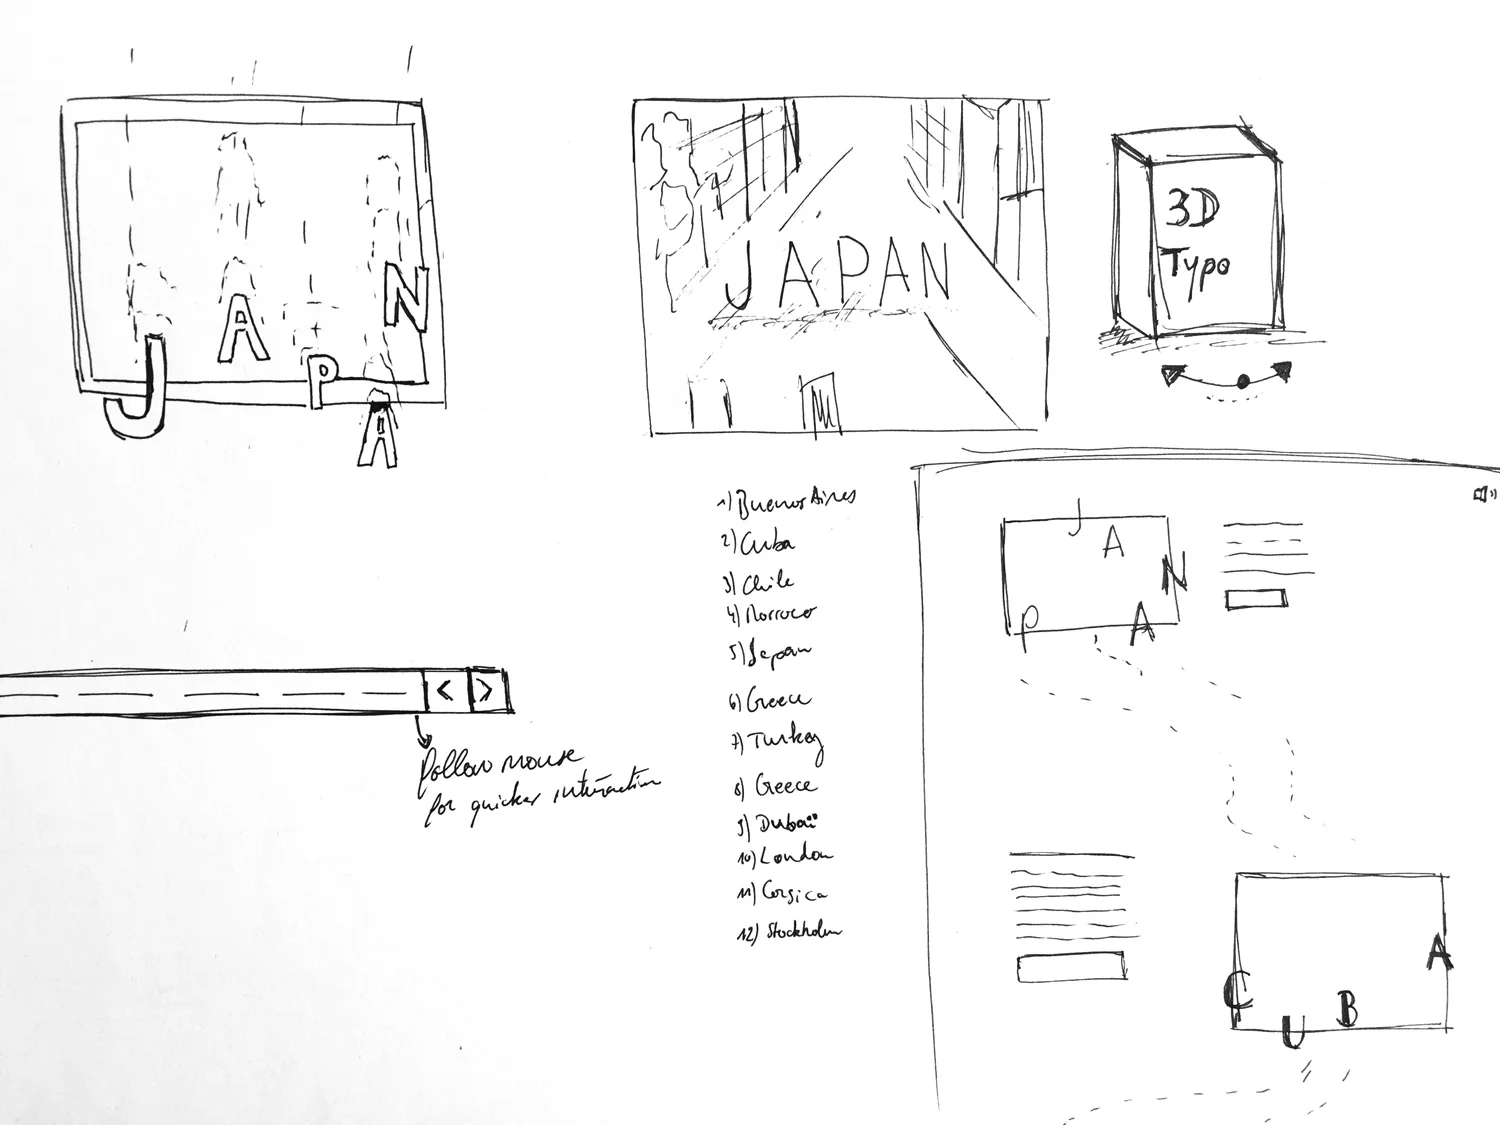 J A P A N
JAPAN
3D
Typo
< >
follow mouse
for quicker interaction
1) Buenos Aires
2) Cuba
3) Chile
4) Morroco
5) Japan
6) Greece
7) Turkey
8) Greece
9) Dubaï
10) London
11) Corsica
12) Stockholm
J A P A N
C U B A